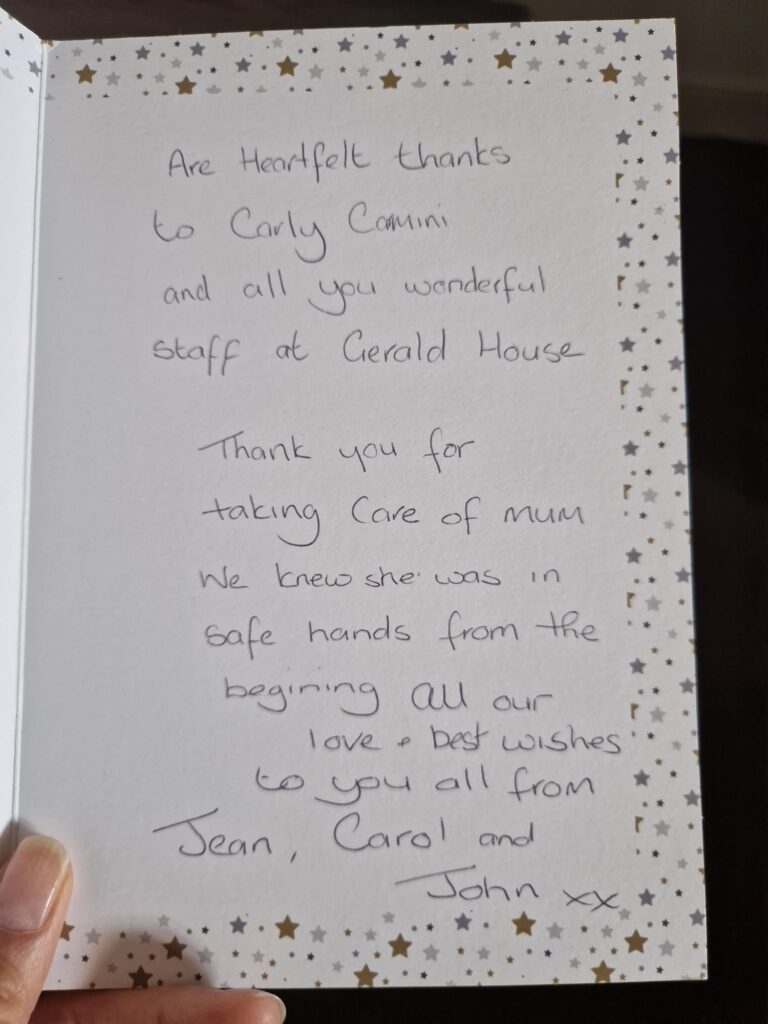 Are Heartfelt thanks
to Carly Camini
and all you wonderful
staff at Gerald House
Thank you for
taking care of mum
We knew she was in
safe hands from the
begining all our
love & best wishes
to you all from
Jean, Carol and
John xx